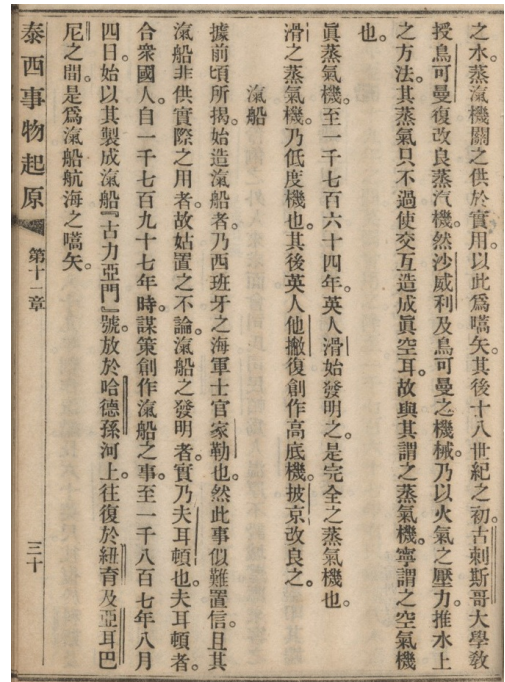 之水。蒸滊機關之供於實用。以此爲嚆矢。其後十八世紀之初古剌斯哥大學敎
授鳥可曼。復改良蒸汽機。然沙威利及鳥可曼之機械。乃以火氣之壓力。推水上
之方法。其蒸氣只不過使交互造成眞空耳。故與其謂之蒸氣機。寧謂之空氣機
也。
眞蒸氣機。至一千七百六十四年。英人滑始發明之。是完全之蒸氣機也。
滑之蒸氣機。乃低度機也。其後英人他撇復創作高底機。披京改良之。
滊船
據前頃所揭。始造滊船者。乃西班牙之海軍士官家勒也。然此事似難置信。且其
滊船非供實際之用者。故姑置之不論。滊船之發明者。實乃夫耳頓也。夫耳頓者。
合衆國人。自一千七百九十七年時。謀策創作滊船之事。至一千八百七年八月
四日。始以其製成滊船『古力亞門』號。放於哈德孫河上。往復於紐育及亞耳巴
尼之間。是爲滊船航海之嚆矢。
泰西事物起原 第十一章 三十